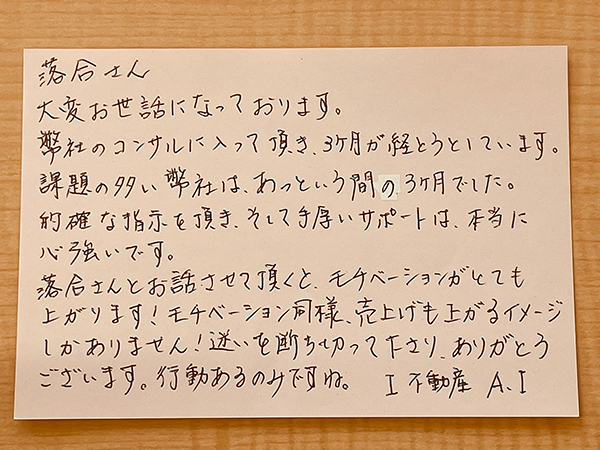 落合さん
大変お世話になっております。
弊社のコンサルに入って頂き、3ヶ月が経とうとしています。
課題の多い弊社は、あっという間の3ヶ月でした。
的確な指示を頂き、そして手厚いサポートは、本当に
心強いです。
落合さんとお話させて頂くと、モチベーションがとても
上がります！モチベーション同様、売上げも上がるイメージ
しかありません！迷いを断ち切って下さり、ありがとう
ございます。行動あるのみですね。 I 不動産 A.I